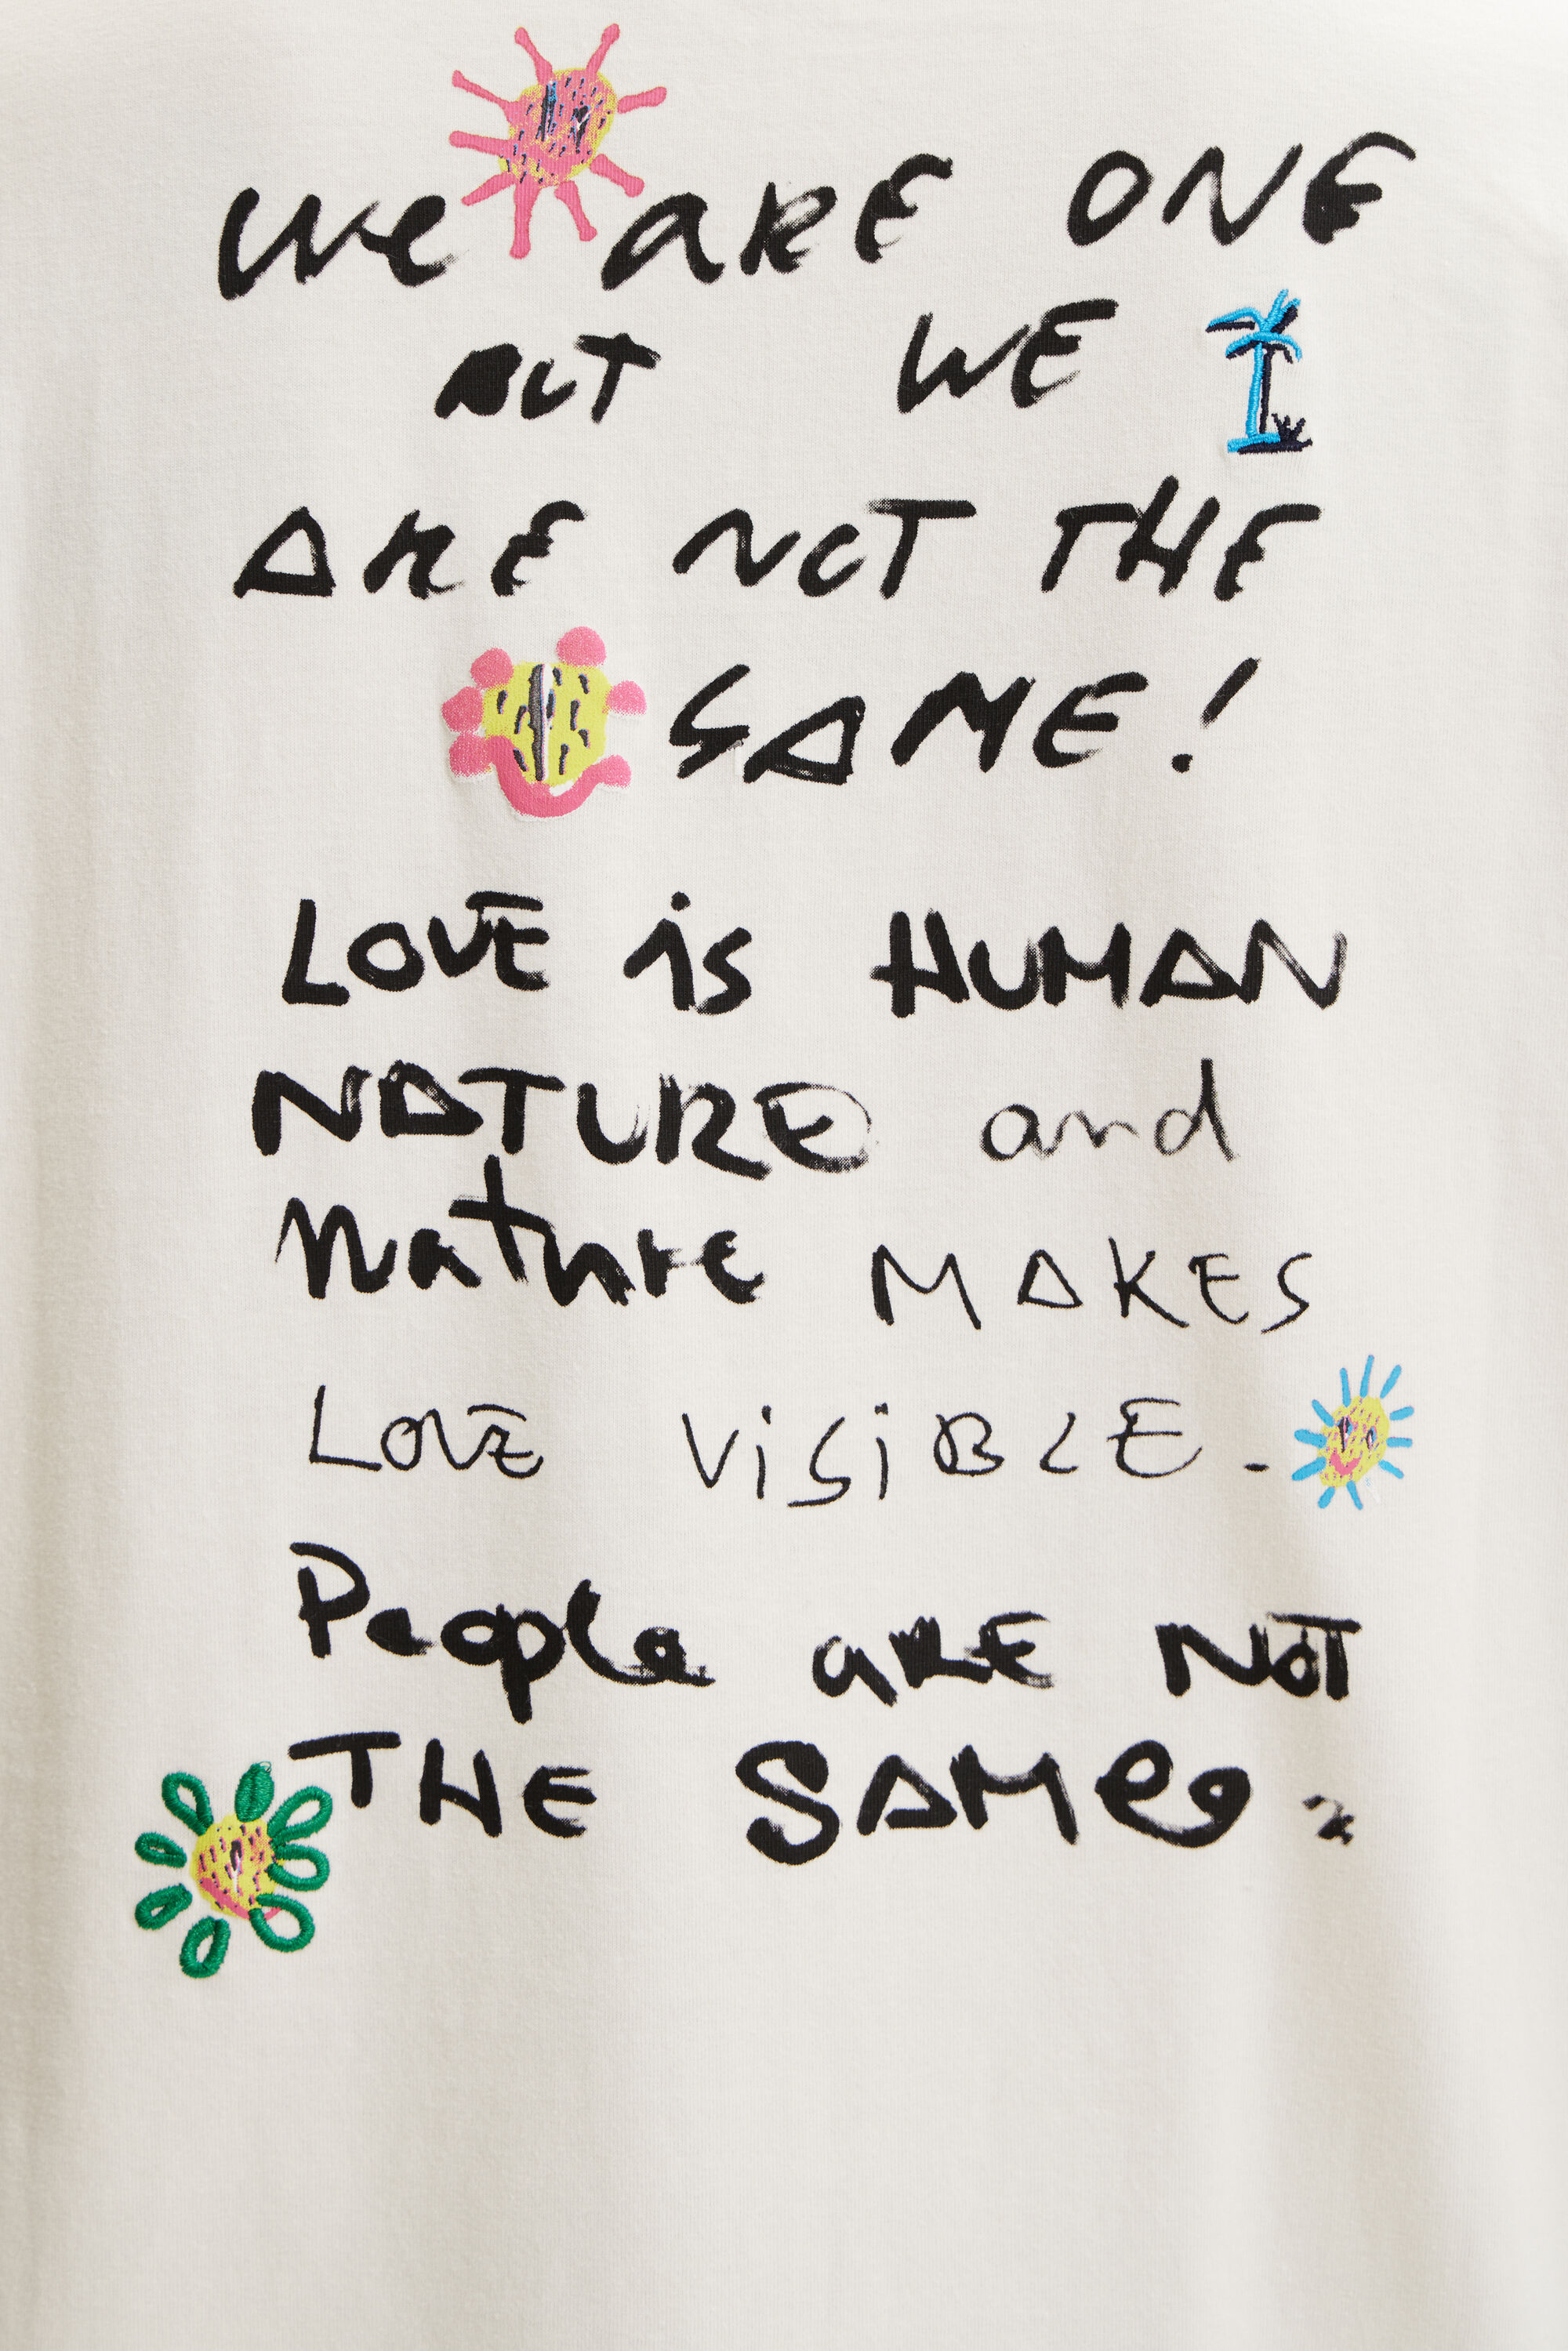 We aRE ONE
BUT WE
ARE NOT THE
SAME!
LOVE is HUMAN
NATURE and
Nature MAKES
LOVE ViSiBLE.
People aRE NOT
THE SAMe.